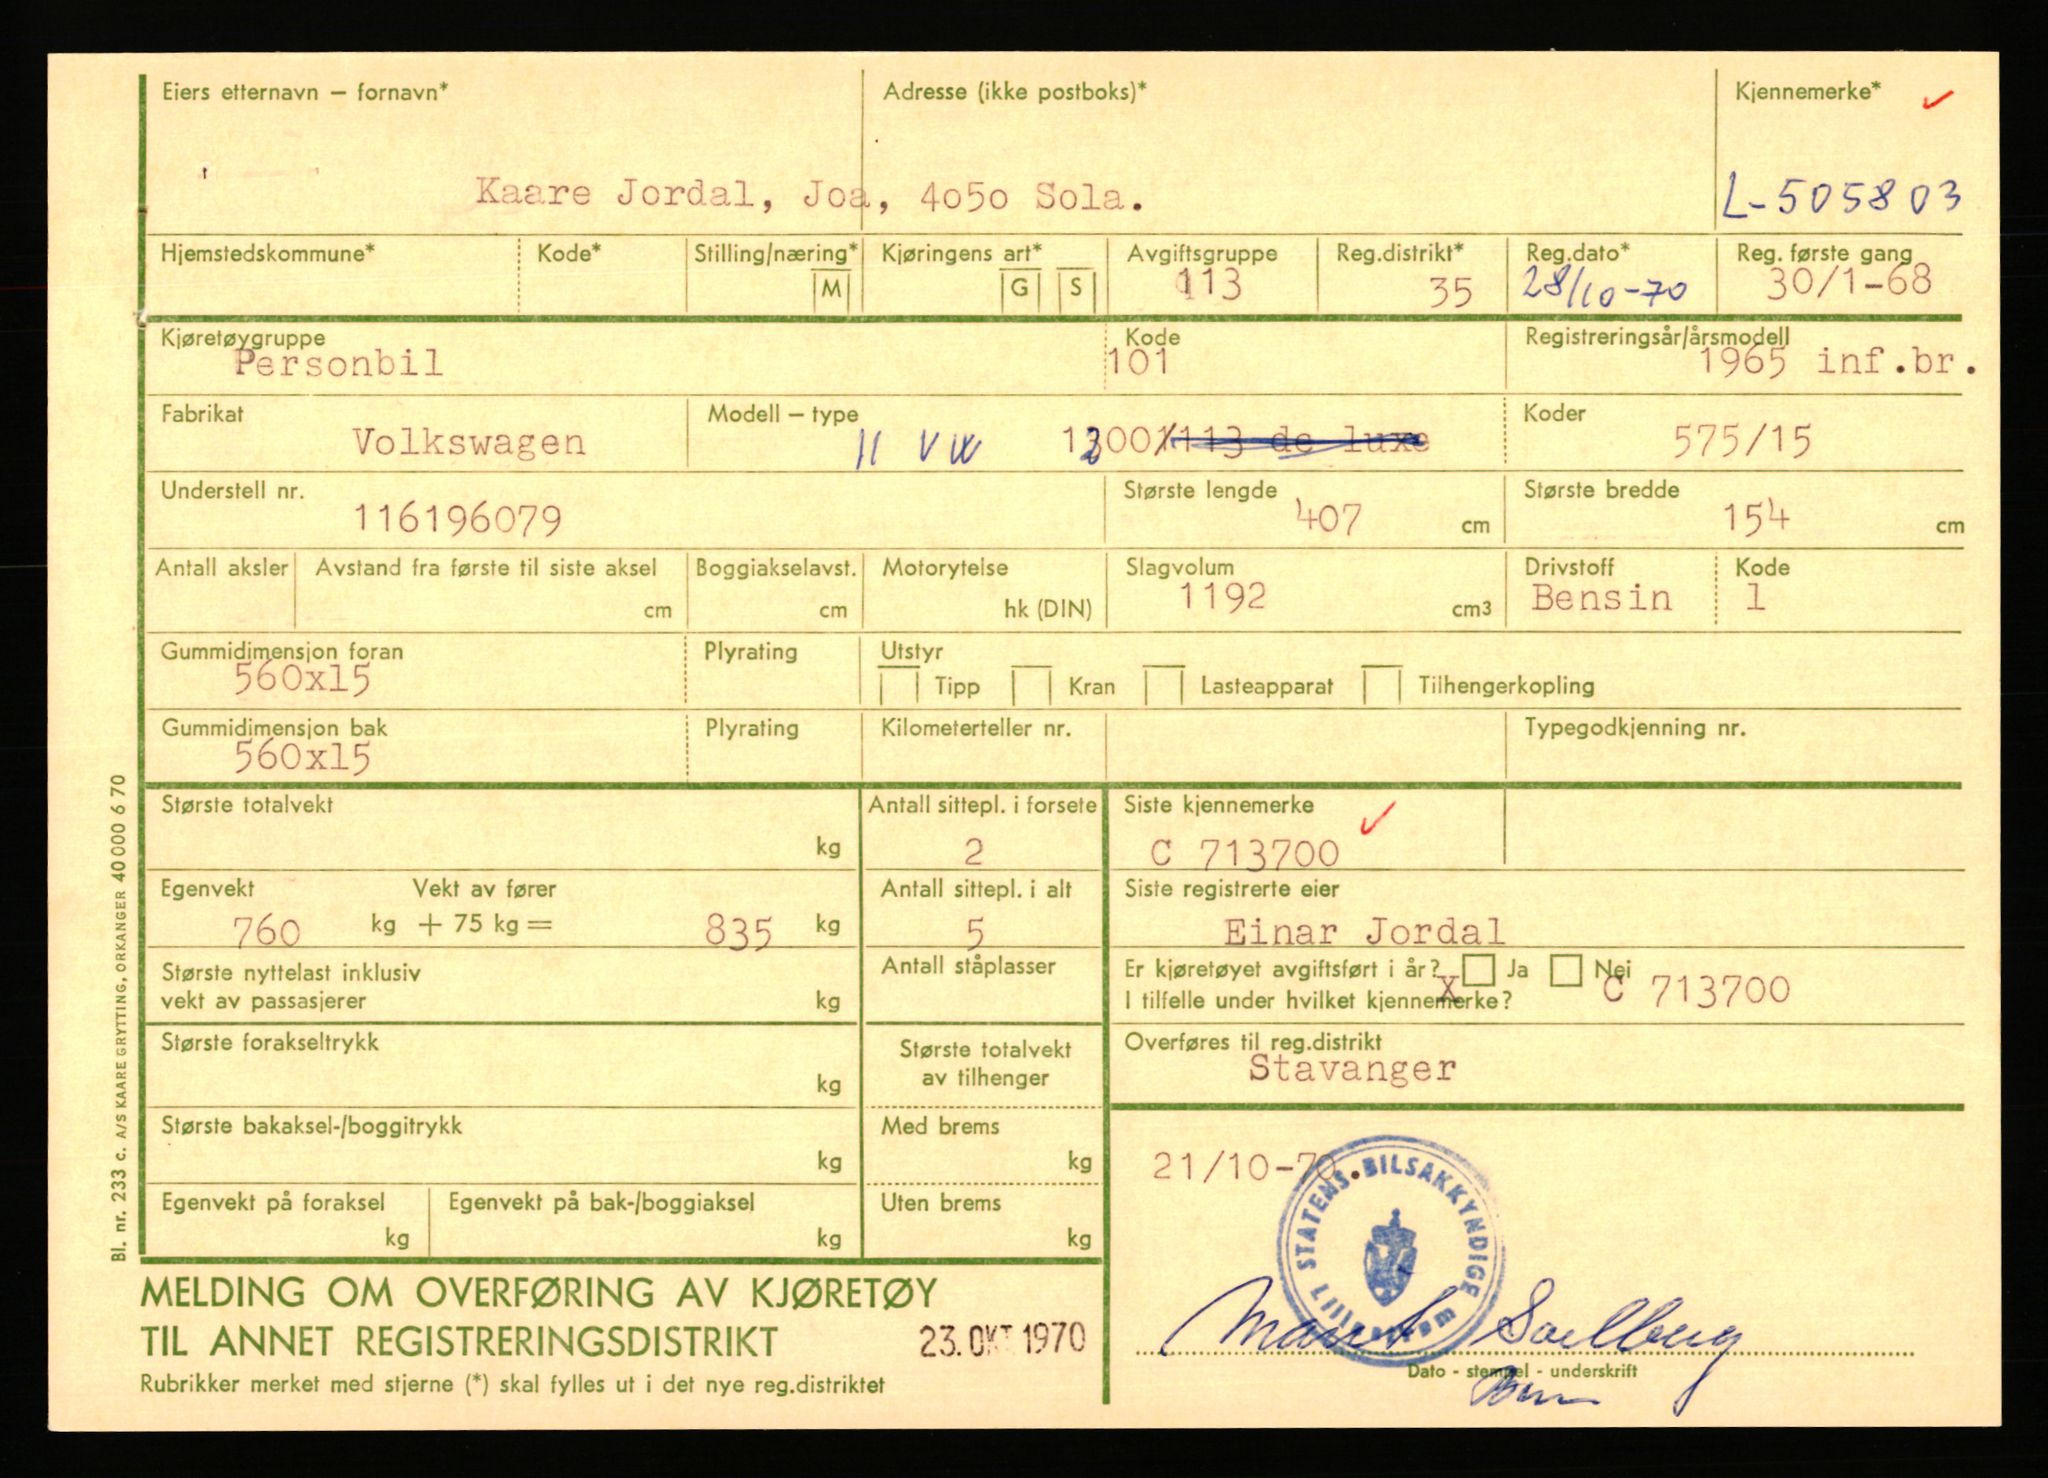 Eiers etternavn – fornavn*
Adresse (ikke postboks)*
Kjennemerke*
Kaare Jordal, Joa, 4050 Sola.
L-505803
Hjemstedskommune*
Kode*
Stilling/næring*
M
Kjøringens art*
G
S
Avgiftsgruppe
113
Reg.distrikt*
35
Reg.dato*
28/10-70
Reg. første gang
30/1-68
Kjøretøygruppe
Personbil
Kode
101
Registreringsår/årsmodell
1965 inf.br.
Fabrikat
Volkswagen
Modell – type
11 VW 1200/113 de luxe
Koder
575/15
Understell nr.
116196079
Største lengde
407 cm
Største bredde
154 cm
Antall aksler
Avstand fra første til siste aksel
cm
Boggiakselavst.
cm
Motorytelse
hk (DIN)
Slagvolum
1192 cm3
Drivstoff
Bensin
Kode
1
Gummidimensjon foran
560x15
Plyrating
Utstyr
Tipp
Kran
Lasteapparat
Tilhengerkopling
Gummidimensjon bak
560x15
Plyrating
Kilometerteller nr.
Typegodkjenning nr.
Største totalvekt
kg
Antall sittepl. i forsete
2
Siste kjennemerke
C 713700
Egenvekt
Vekt av fører
760 kg + 75 kg = 835 kg
Antall sittepl. i alt
5
Siste registrerte eier
Einar Jordal
Største nyttelast inklusiv
vekt av passasjerer
kg
Antall ståplasser
Er kjøretøyet avgiftsført i år? Ja Nei
X
I tilfelle under hvilket kjennemerke?
C 713700
Største forakseltrykk
kg
Største totalvekt
av tilhenger
Overføres til reg.distrikt
Stavanger
Største bakaksel-/boggitrykk
kg
Med brems
kg
21/10-70.
STATENS BILSAKKYNDIGE
Lillestrøm
Egenvekt på foraksel
kg
Egenvekt på bak-/boggiaksel
kg
Uten brems
kg
MELDING OM OVERFØRING AV KJØRETØY
TIL ANNET REGISTRERINGSDISTRIKT
23. OKT 1970
Rubrikker merket med stjerne (*) skal fylles ut i det nye reg.distriktet
Dato - stempel - underskrift
Bl. nr. 233 c. A/S KAARE GRYTTING, ORKANGER 40 000 6 70